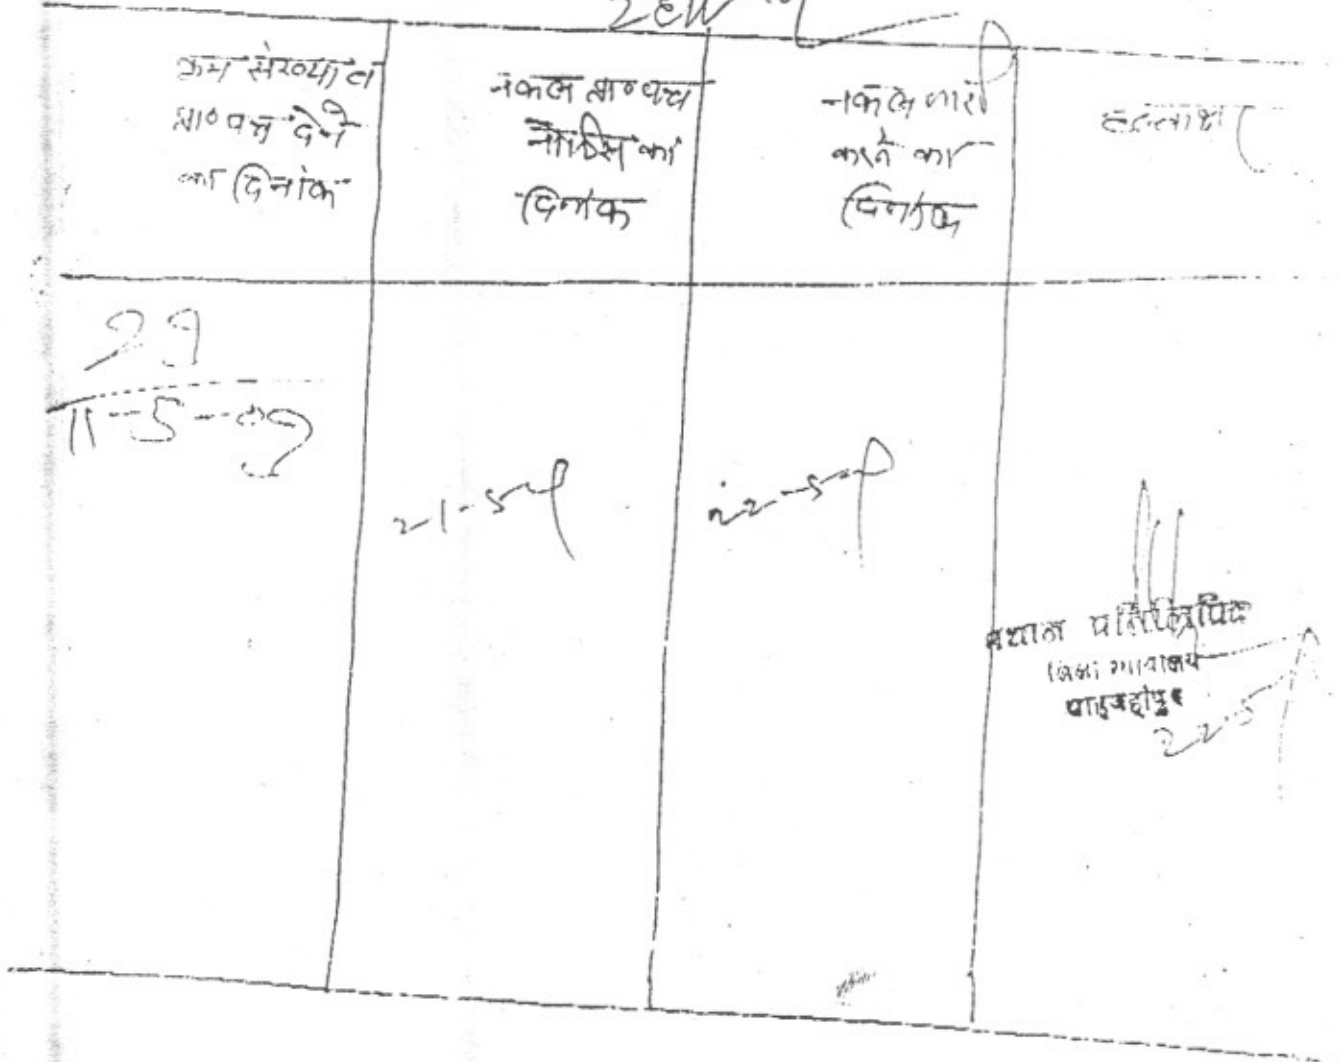 क्रम संख्या व
प्रा० पत्र देने
का दिनांक
नकल प्रा० पत्र
नोटिस का
दिनांक
नकल जारी
करने का
दिनांक
हस्ताक्षर
29
11-5-09
21-5-09
22-5-09
प्रधान प्रतिलिपिक
जिला न्यायालय
शाहजहाँपुर
22-5